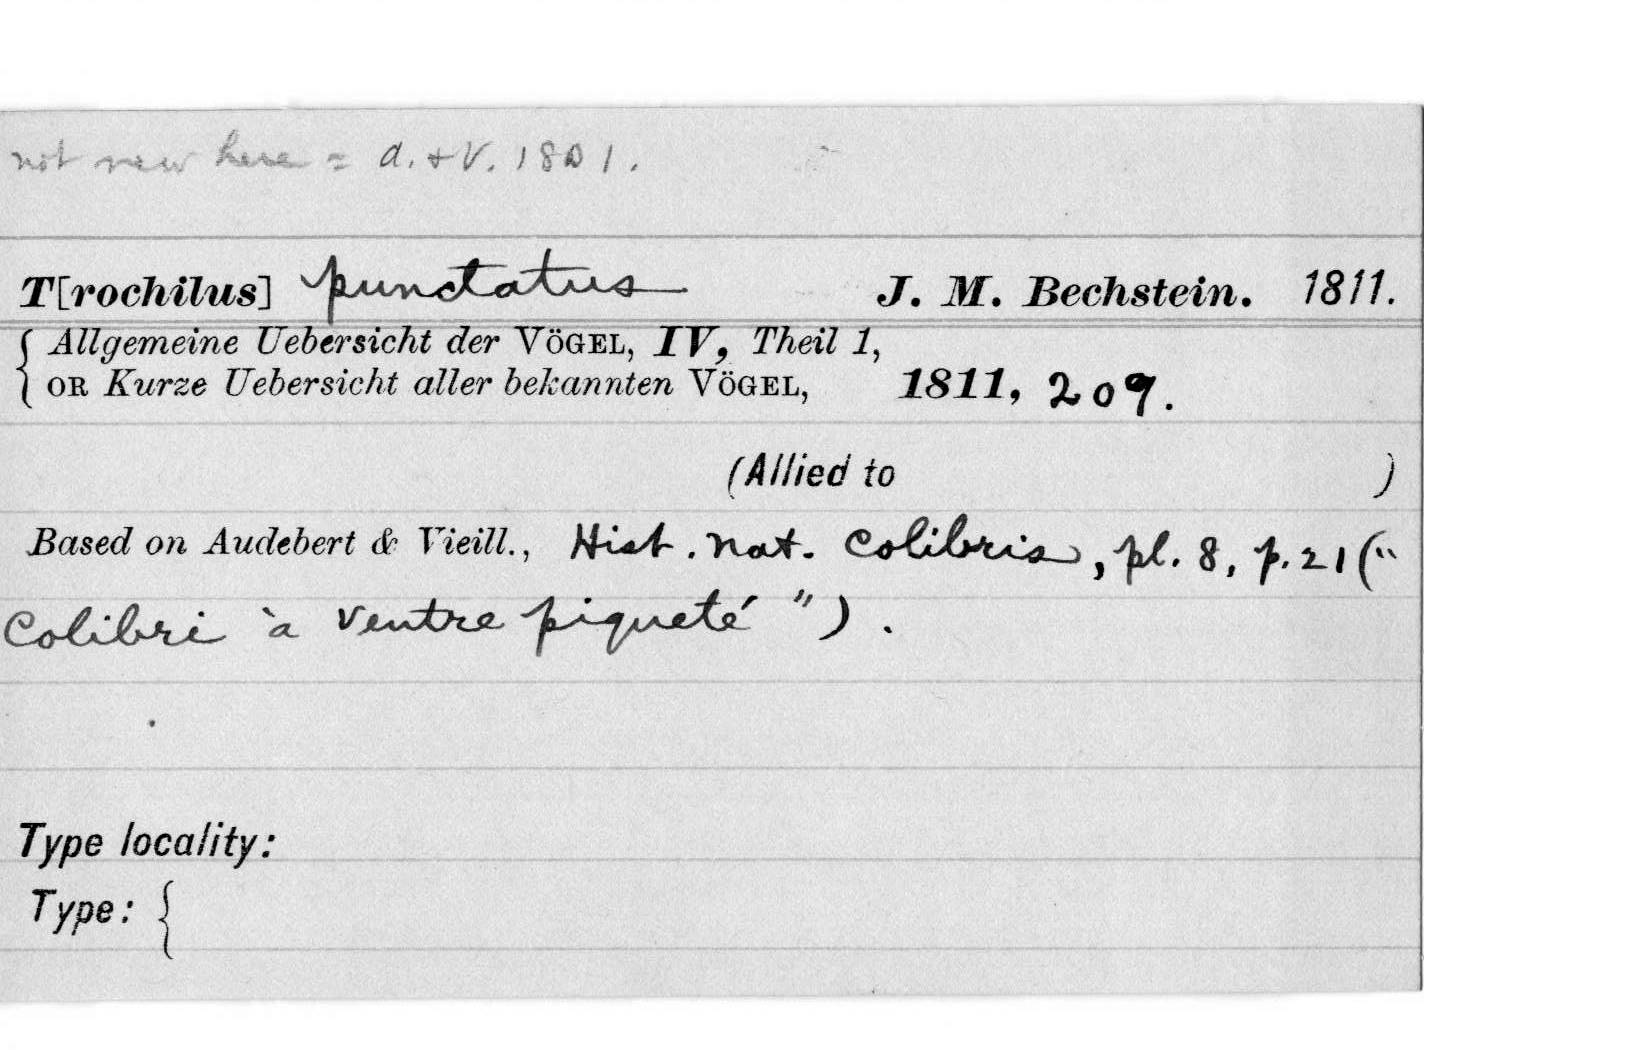 not new here = a. + V. 1801.
T[rochilus] punctatus J. M. Bechstein. 1811.
{ Allgemeine Uebersicht der VÖGEL, IV, Theil 1,
OR Kurze Uebersicht aller bekannten VÖGEL, 1811, 209.
(Allied to )
Based on Audebert & Vieill., Hist. nat. Colibris, pl. 8, p. 21 ("
Colibri à ventre piqueté").
Type locality:
Type: {